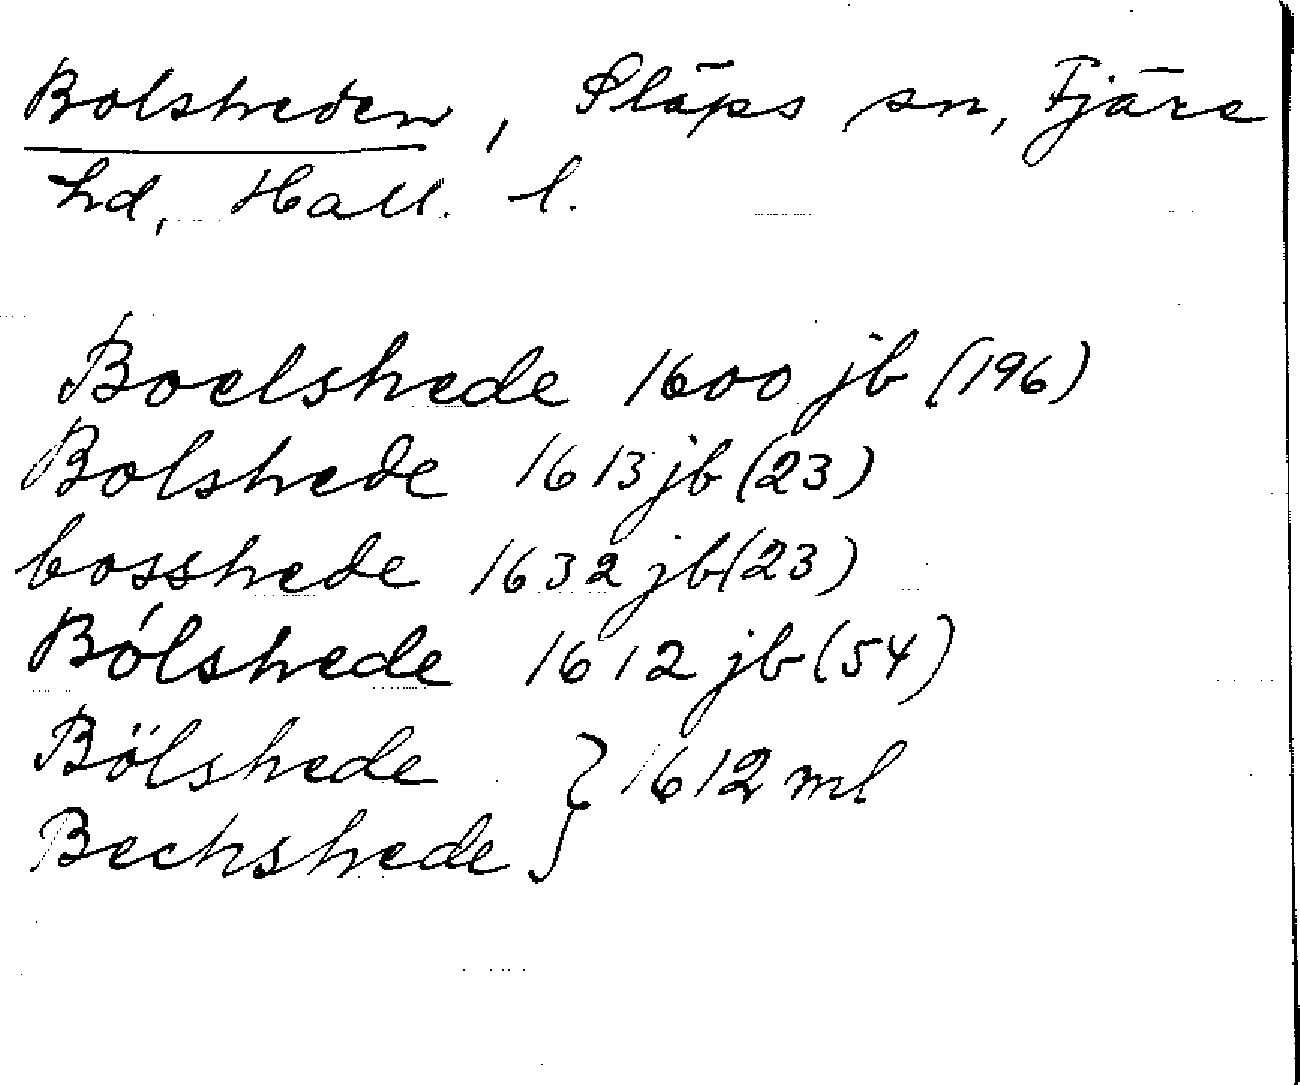 Bolsheden, Släps sn, Fjäre
hd, Hall. l.
Boelshede 1600 jb (196)
Bolshede 1613 jb (23)
bosshede 1632 jb (23)
Bólshede 1612 jb (54)
Bölshede } 1612 ml
Bechshede